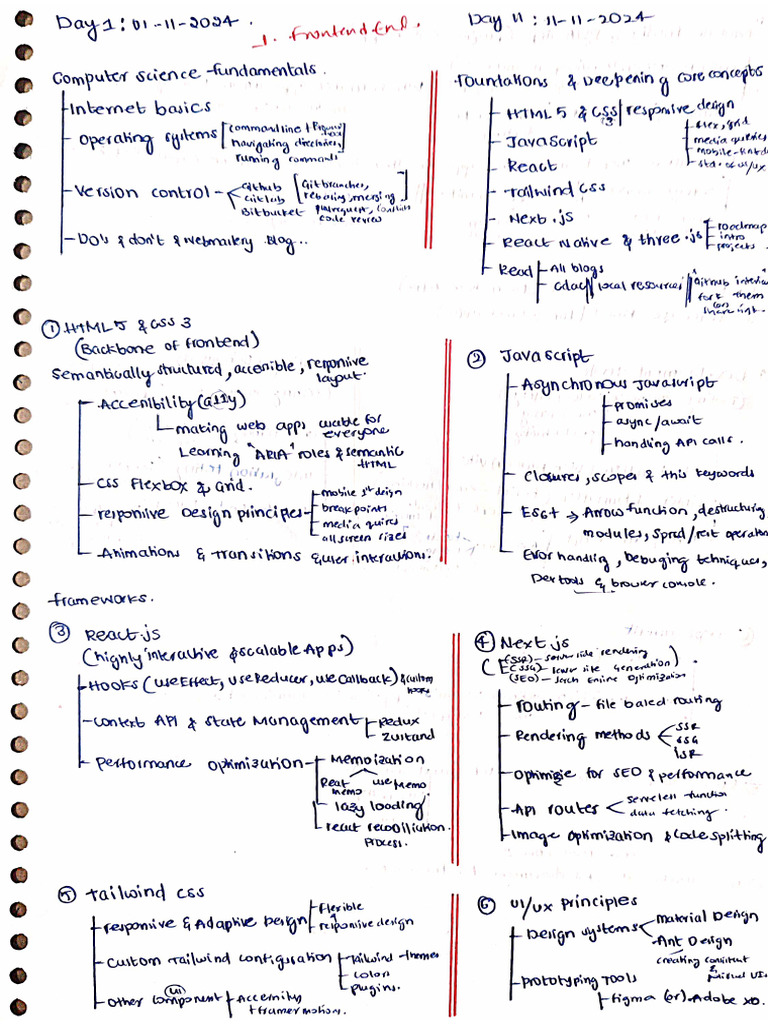 Day 1: 01-11-2024.
1. Frontend End.
Day 11: 11-11-2024
Computer science fundamentals.
Internet basics
Operating systems [command line +
navigating directories,
running commands
Version control
Github
Gitlab
Bitbucket
[Git branches,
rebasing, merging
pullrequest, conflicts
code review
DO's & don't & webmastery Blog..
Foundations & Deepening core concepts
HTML5 & CSS3 / responsive design
flex, grid
media queries
Javascript
React
Tailwind CSS
Next.js
React Native & three.js
roadmap
intro
projects
Read
All blogs
local resources
fork them
① HTML5 & CSS3
(Backbone of frontend)
Semantically structured, accessible, responsive
layout.
Accessibility (a11y)
making web apps usable for
everyone
Learning "ARIA" roles & semantic
HTML
CSS Flexbox & Grid.
responsive Design principles
mobile 1st design
breakpoints
media quires
all screen sizes
Animations & transitions & user interactions.
② Javascript
Asynchronous Javascript
promises
async/await
handling API calls.
Closures, scopes & this keywords
ES6+ → Arrow function, destructuring
modules, Spred/rest operators
Error handling, Debuging techniques,
Dev tools & browser console.
frameworks.
③ React.js
(highly interactive & scalable Apps)
Hooks (useEffect, useReducer, useCallback) & custom
hooks
Context API & State Management
Redux
Zustand
performance optimization
Memoization
React
memo
useMemo
lazy loading
react recociliation
process.
④ Next.js
(SSR) - server side rendering
(SSG)
Generation
(SEO) - Serch Engine Optimization
routing - file based routing
Rendering methods
SSR
SSG
ISR
Optimize for SEO & performance
API routes
serverless function
data fetching.
Image optimization & code splitting
⑤ Tailwind CSS
responsive & Adaptive Design
Flexible
responsive design
Custom Tailwind configuration
Tailwind themes
colors
plugins.
Other (UI) component
framer motion.
⑥ UI/UX principles
Design systems
Material Design
Ant Design
creating consistent
&
PROTOTYPING TOOLS
Figma (or) Adobe XD.